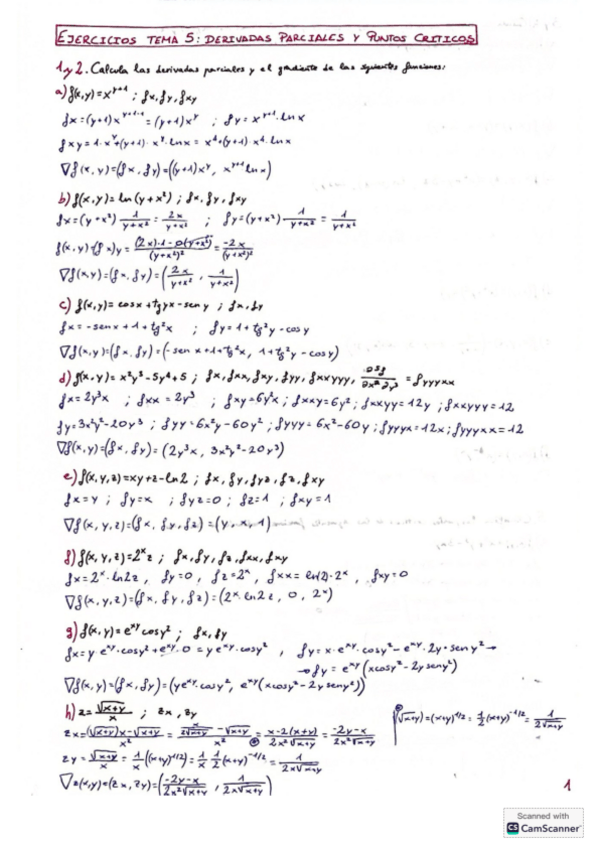 EJERCICIOS TEMA 5: DERIVADAS PARCIALES Y PUNTOS CRITICOS
1 y 2. Calcula las derivadas parciales y el gradiente de las siguientes funciones:
a) f(x,y)=x^{y+1} ; fx, fy, fxy
fx=(y+1)x^{y+1-1}=(y+1)x^y ; fy=x^{y+1}·lnx
fxy=1·x^y+(y+1)·x^y·lnx=
∇f(x,y)=(fx,fy)=((y+1)x^y, x^{y+1}lnx)
b) f(x,y)=ln(y+x²) ; fx, fy, fxy
fx=(y+x²)·1/(y+x²)=2x/(y+x²) ; fy=(y+x²)·1/(y+x²)=1/(y+x²)
f(x,y)=(fx)y=((2x)·1-0(y+x²))/(y+x²)²=-2x/(y+x²)²
∇f(x,y)=(fx,fy)=(2x/(y+x²), 1/(y+x²))
c) f(x,y)=cosx+tgyx-seny ; fx, fy
fx=-senx+1+tg²x ; fy=1+tg²y-cosy
∇f(x,y)=(fx,fy)=(-senx+1+tg²x, 1+tg²y-cosy)
d) f(x,y)=x²y³-5y⁴+5 ; fx, fxx, fxy, fyy, fxxyyy, ∂5f/∂x²∂y³=fyyyxx
fx=2y³x ; fxx=2y³ ; fxy=6y²x ; fxxy=6y² ; fxxyy=12y ; fxxyyy=12
fy=3x²y²-20y³ ; fyy=6x²y-60y² ; fyyy=6x²-60y ; fyyyx=12x ; fyyyxx=12
∇f(x,y)=(fx,fy)=(2y³x, 3x²y²-20y³)
e) f(x,y,z)=xy+z-ln2 ; fx, fy, fyz, fz, fxy
fx=y ; fy=x ; fyz=0 ; fz=1 ; fxy=1
∇f(x,y,z)=(fx,fy,fz)=(y,x,1)
f) f(x,y,z)=2^x z ; fx, fy, fz, fxx, fxy
fx=2^x·ln2z, fy=0, fz=2^x, fxx=ln(2)·2^x, fxy=0
∇f(x,y,z)=(fx,fy,fz)=(2^x·ln2z, 0, 2^x)
g) f(x,y)=e^{xy}cosy² ; fx, fy
fx=y·e^{xy}·cosy²+e^{xy}·0=ye^{xy}·cosy² , fy=x·e^{xy}·cosy²-e^{xy}·2y·seny²→
→fy=e^{xy}(xcosy²-2yseny²)
∇f(x,y)=(fx,fy)=(ye^{xy}cosy², e^{xy}(xcosy²-2yseny²))
h) z=√(x+y)/x ; zx, zy
zx=((√(x+y))x-√(x+y))/x²=(x/(2√(x+y))-√(x+y))/x²=(x-2(x+y))/(2x²√(x+y))=(-2y-x)/(2x²√(x+y))
√(x+y)=(x+y)^{1/2}=1/2(x+y)^{-1/2}=1/(2√(x+y))
zy=√(x+y)/x=1/x((x+y)^{1/2})=1/x·1/2(x+y)^{-1/2}=1/(2x√(x+y))
∇z(x,y)=(zx,zy)=((-2y-x)/(2x²√(x+y)), 1/(2x√(x+y)))
1
Scanned with
CS CamScanner